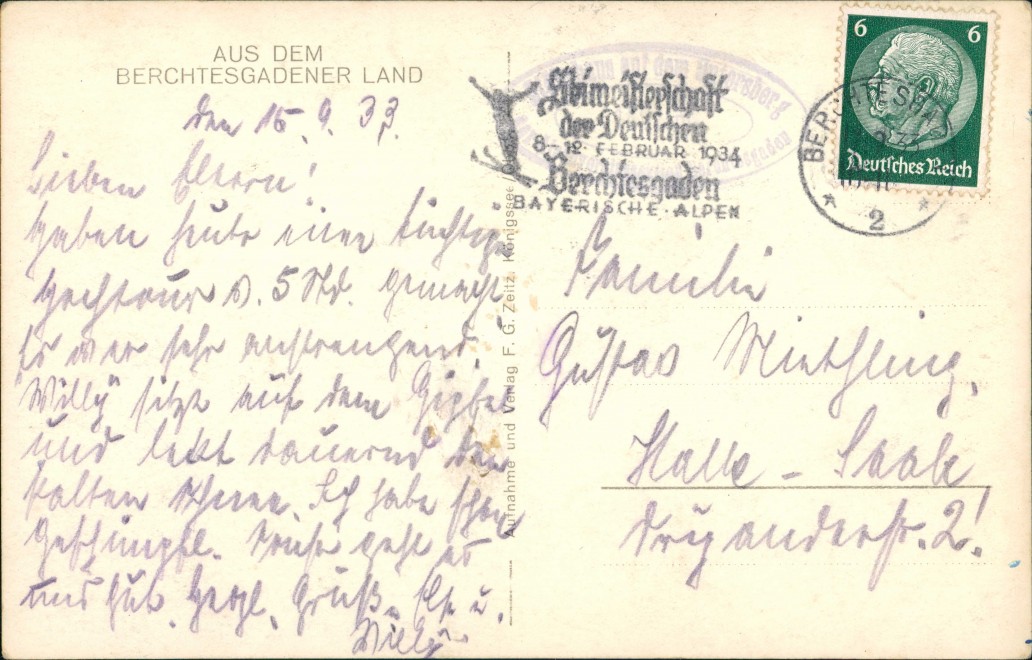 AUS DEM
BERCHTESGADENER LAND
den 15. 9. 33.
Lieben Eltern!
Haben heute eine tüchtige
Hochtour v. 5 Std. gemacht,
Es war sehr anstrengend.
Willy sitzt auf dem Gipfel
und lekt dauernd den
kalten Schnee. Ich habe schon
geschimpft. Sonst geht es
uns gut. Herzl. Grüße u.
Willy
Aufnahme und Verlag F. G. Zeitz, Königssee
Skimeisterschaft
der Deutschen
8-12. FEBRUAR 1934
Berchtesgaden
BAYERISCHE ALPEN
BERCHTESGADEN
2
6 6
Deutsches Reich
Familie
Gustav Miethling,
Halle - Saale
Dryanderstr. 2!